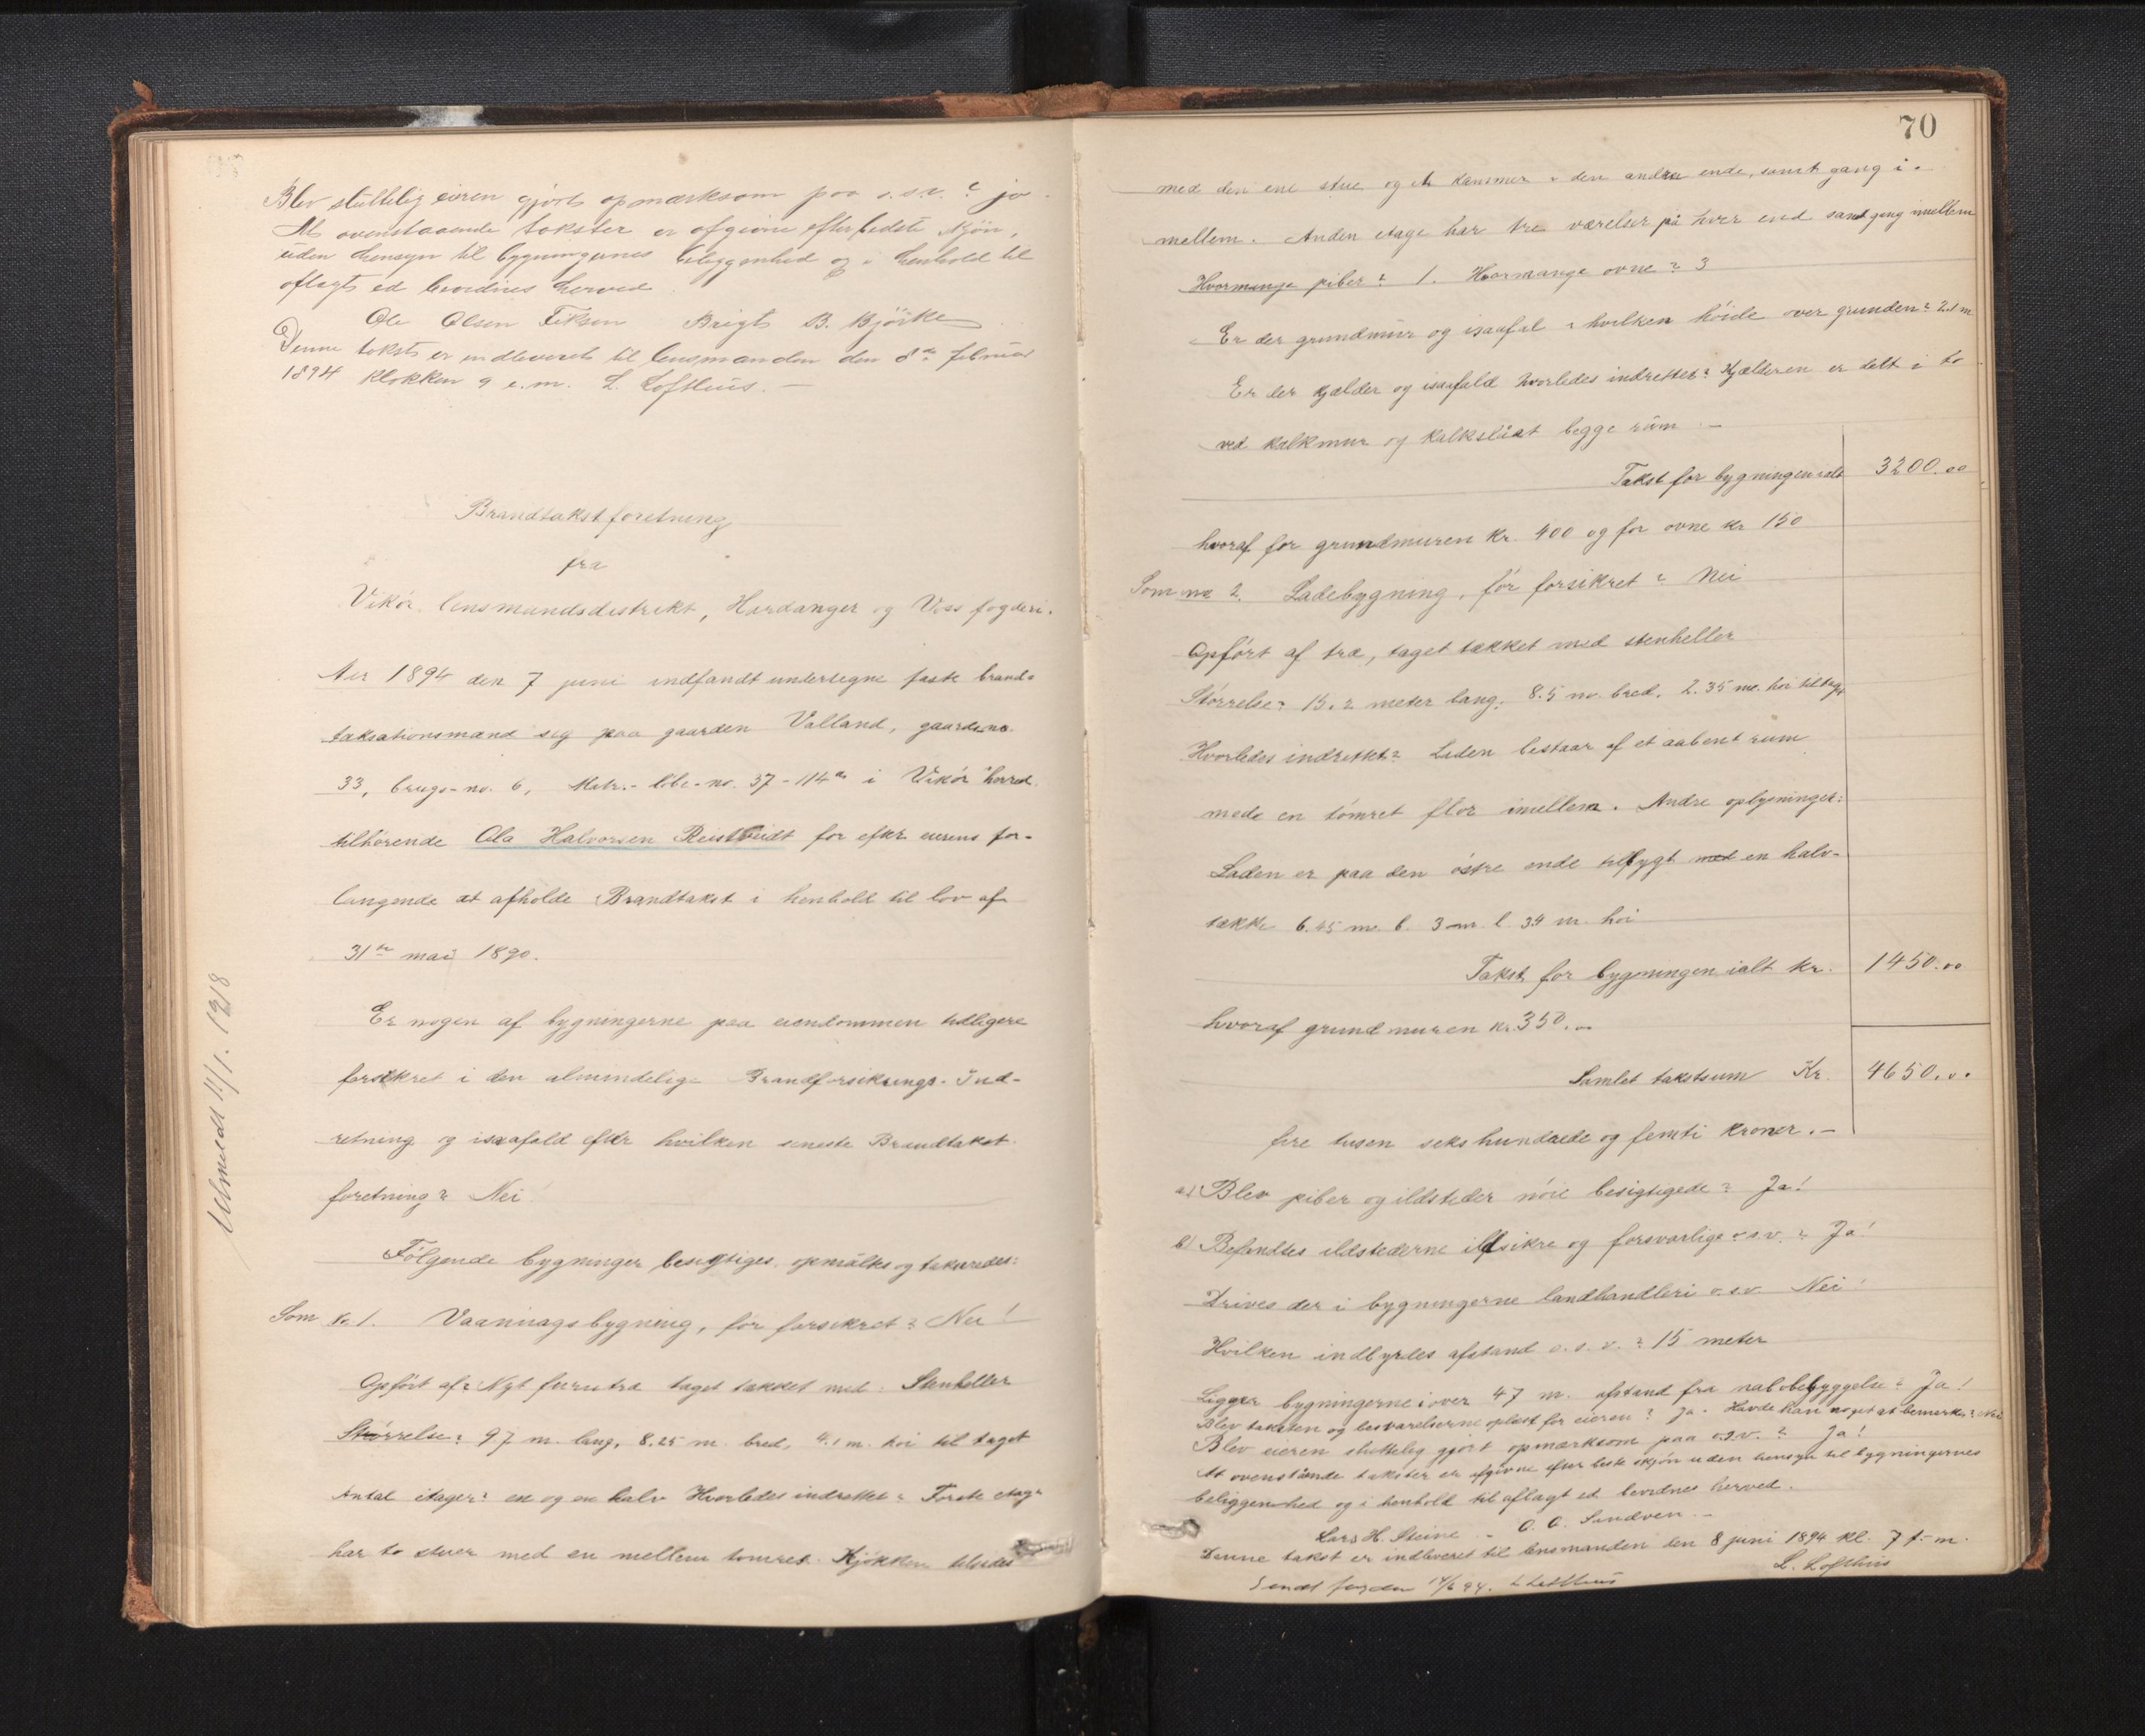 Blev sluttelig eieren gjort opmærksom paa o.s.v.? ja
At ovenstaaende takster er afgivne efter bedste skjøn,
uden hensyn til bygningernes beliggenhed og i henhold til
aflagt ed bevidnes herved.
Ole Olsen Fiksen Brigt B. Björke
Denne takst er indleveret til lensmanden den 8de februar
1894 klokken 9 e.m. L. Lofthus. —
Brandtakstforetning
fra
Vikör lensmandsdistrikt, Hardanger og Voss fogderi.
Aar 1894 den 7 juni indfandt undertegne faste brand-
taksationsmænd sig paa gaarden Valland, gaardsno.
33, brugs-no. 6, Matr.- löbe-no. 37-114 i Vikör herred
tilhørende Ola Halvorsen for efter eierens for-
langende at afholde Brandtakst i henhold til lov af
31te mai 1890.
Er nogen af bygningerne paa eiendommen tidligere
forsikret i den almindelige Brandforsikrings-Ind-
retning og isaafald efter hvilken seneste Brandtakst
foretning? Nei
Følgende bygninger besigtiges, opmåltes og takseredes:
Som No 1. Vaaningsbygning, før forsikret? Nei!
Opført af? Nyt furutræ taget tækket med: Stenheller
Størrelse? 97 m. lang, 8.25 m. bred, 4.1 m. höi til taget
Antal etager? en og en halv Hvorledes indrettet? Første etage
har to stuer med en mellem tömret. Kjøkken
Udmeldt 11/1. 1918
70
med den ene stue og et kammer i den andre ende, samt gang i-
mellem. Anden etage har tre værelser på hver end samt gang imellem
Hvormange piber? 1. Hvormange ovne? 3
Er der grundmur og isaafal i hvilken höide over grunden? 2.1 m
Er der kjælder og isaafald hvorledes indrettet? Kjælderen er delt i to
ved kalkmur og kalkslåat begge rüm. —
Takst for bygningen ialt 3200.00
hvoraf for grundmuren kr. 400 og for ovne kr 150
Som no 2. Ladebygning, för forsikret? Nei
Opfört af træ, taget tækket med stenheller
Størrelse? 15.2 meter lang, 8.5 m. bred, 2.35 m. höi til taget
Hvorledes indrettet? Laden bestaar af et aabent rum
mede en tömret flor imellem. Andre oplysninger:
Laden er paa den östre ende tilbygt med en halv-
tække 6.45 m. b. 3 m. l. 34 m. höi
Takst for bygningen ialt kr. 1450.00
hvoraf grundmuren kr. 350.—
Samlet takstsum Kr. 4650.00
fire tusen sekshundrede og femti kroner. —
a) Blev piber og ildsteder nöie besigtigede? Ja!
b) Befandtes ildstederne ildsikre og forsvarlige o.s.v.? Ja!
Drives der i bygningerne landhandleri o.s.v. Nei!
Hvilken indbyrdes afstand o.s.v.? 15 meter
Ligger bygningerne i over 47 m. afstand fra nabobebyggelse? Ja!
Blev taksten og besvarelserne oplæst for eieren? Ja. Havde han noget at bemærke? Nei
Blev eieren sluttelig gjort opmærksom paa o.s.v.? Ja!
At ovenstående takster er afgivne efter beste skjön uden hensyn til bygningernes
beliggenhed og i henhold til aflagt ed bevidnes herved.
Lars H. Steine. — O. O. Sandven. —
Denne takst er indleveret til lensmanden den 8 juni 1894 kl. 7 f.m.
L. Lofthus
Sendt fogden 14/6 94. L Lofthus